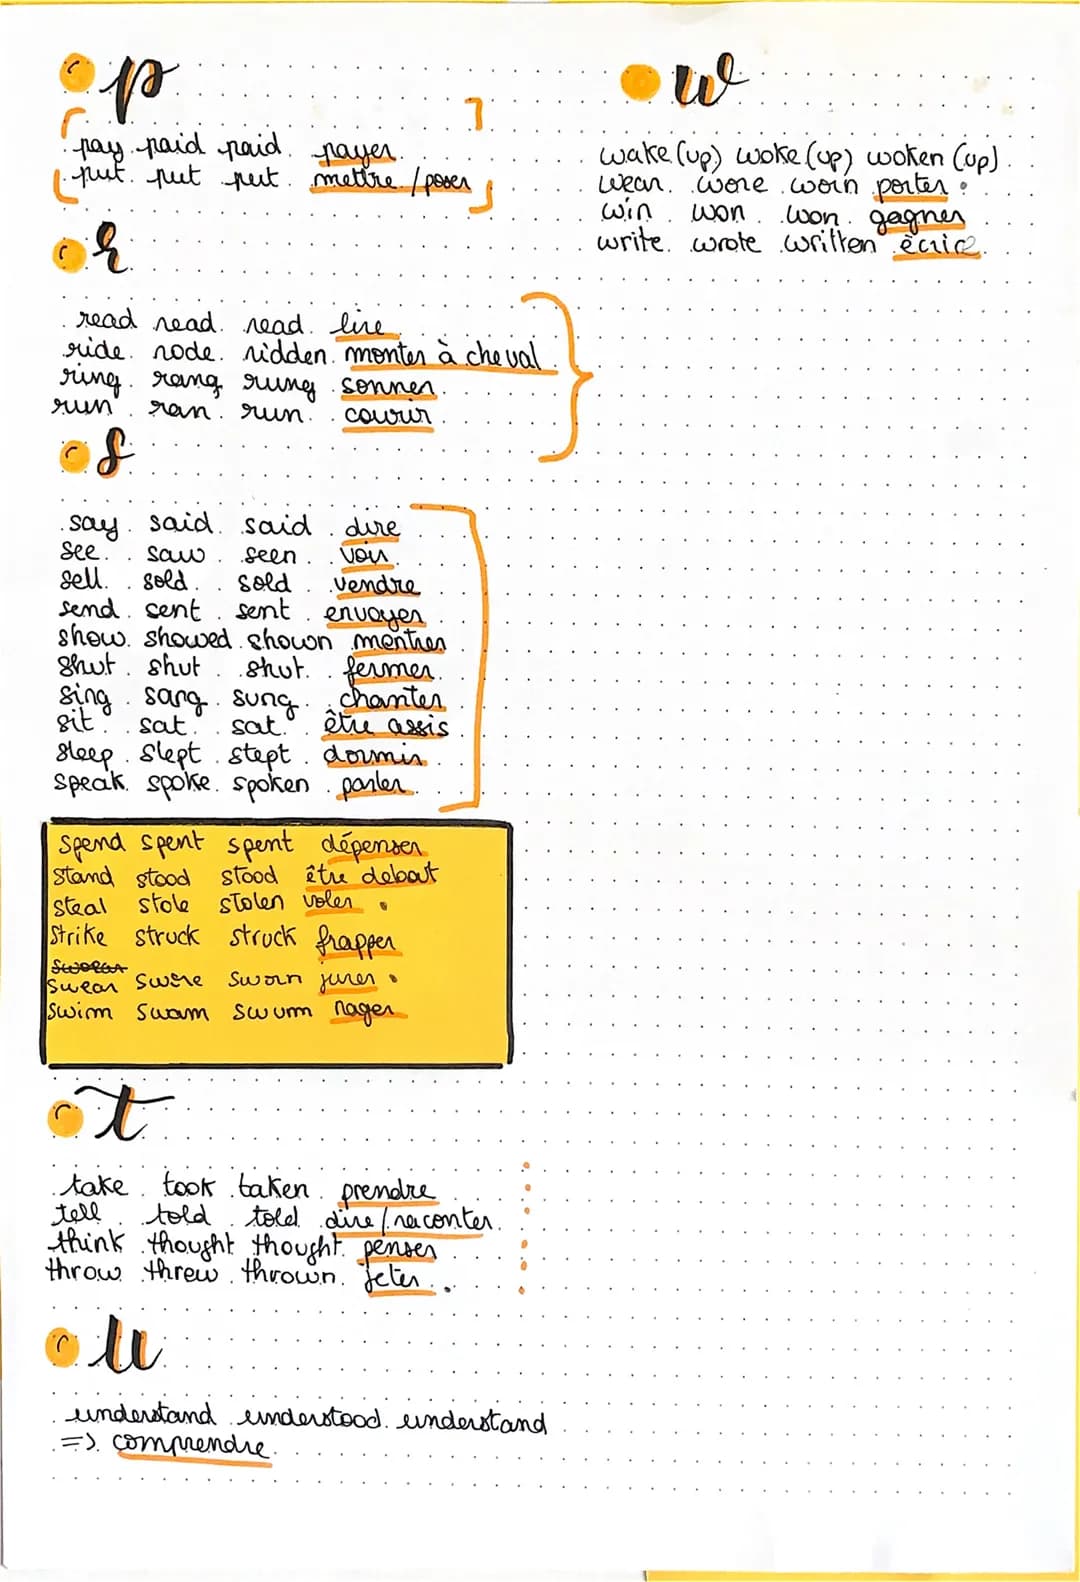 p
pay paid paid payer
put put put mettre / poser
r
read read read lire
ride rode ridden monter à cheval
ring rang rung sonner
run ran run courir
s
say said said dire
see saw seen voir
sell sold sold vendre
send sent sent envoyer
show showed shown montrer
shut shut shut fermer
sing sang sung chanter
sit sat sat être assis
sleep slept slept dormir
speak spoke spoken parler
spend spent spent dépenser
stand stood stood être debout
steal stole stolen voler
strike struck struck frapper
swear swere sworn jurer
swim swam swum nager
t
take took taken prendre
tell told told dire / raconter
think thought thought penser
throw threw thrown jeter
u
understand understood understand
=> comprendre
w
wake (up) woke (up) woken (up)
wear wore worn porter
win won won gagner
write wrote written écrire